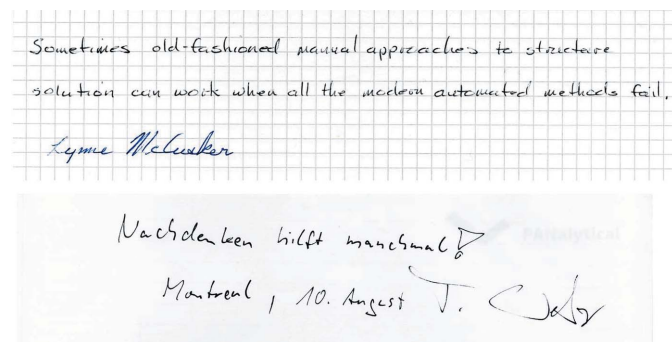 Sometimes old-fashioned manual approaches to structure
solution can work when all the modern automated methods fail.
Lynne McCusker
PANalytical
Nachdenken hilft manchmal!
Montreal, 10. August T.